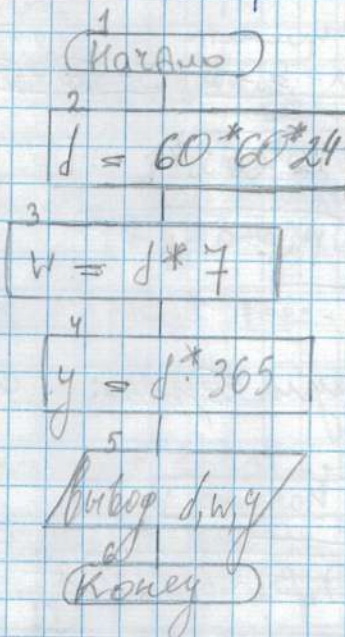 1
Начало
2
d = 60*60*24
3
w = d * 7
4
y = d * 365
5
Вывод d, w, y
6
Конец